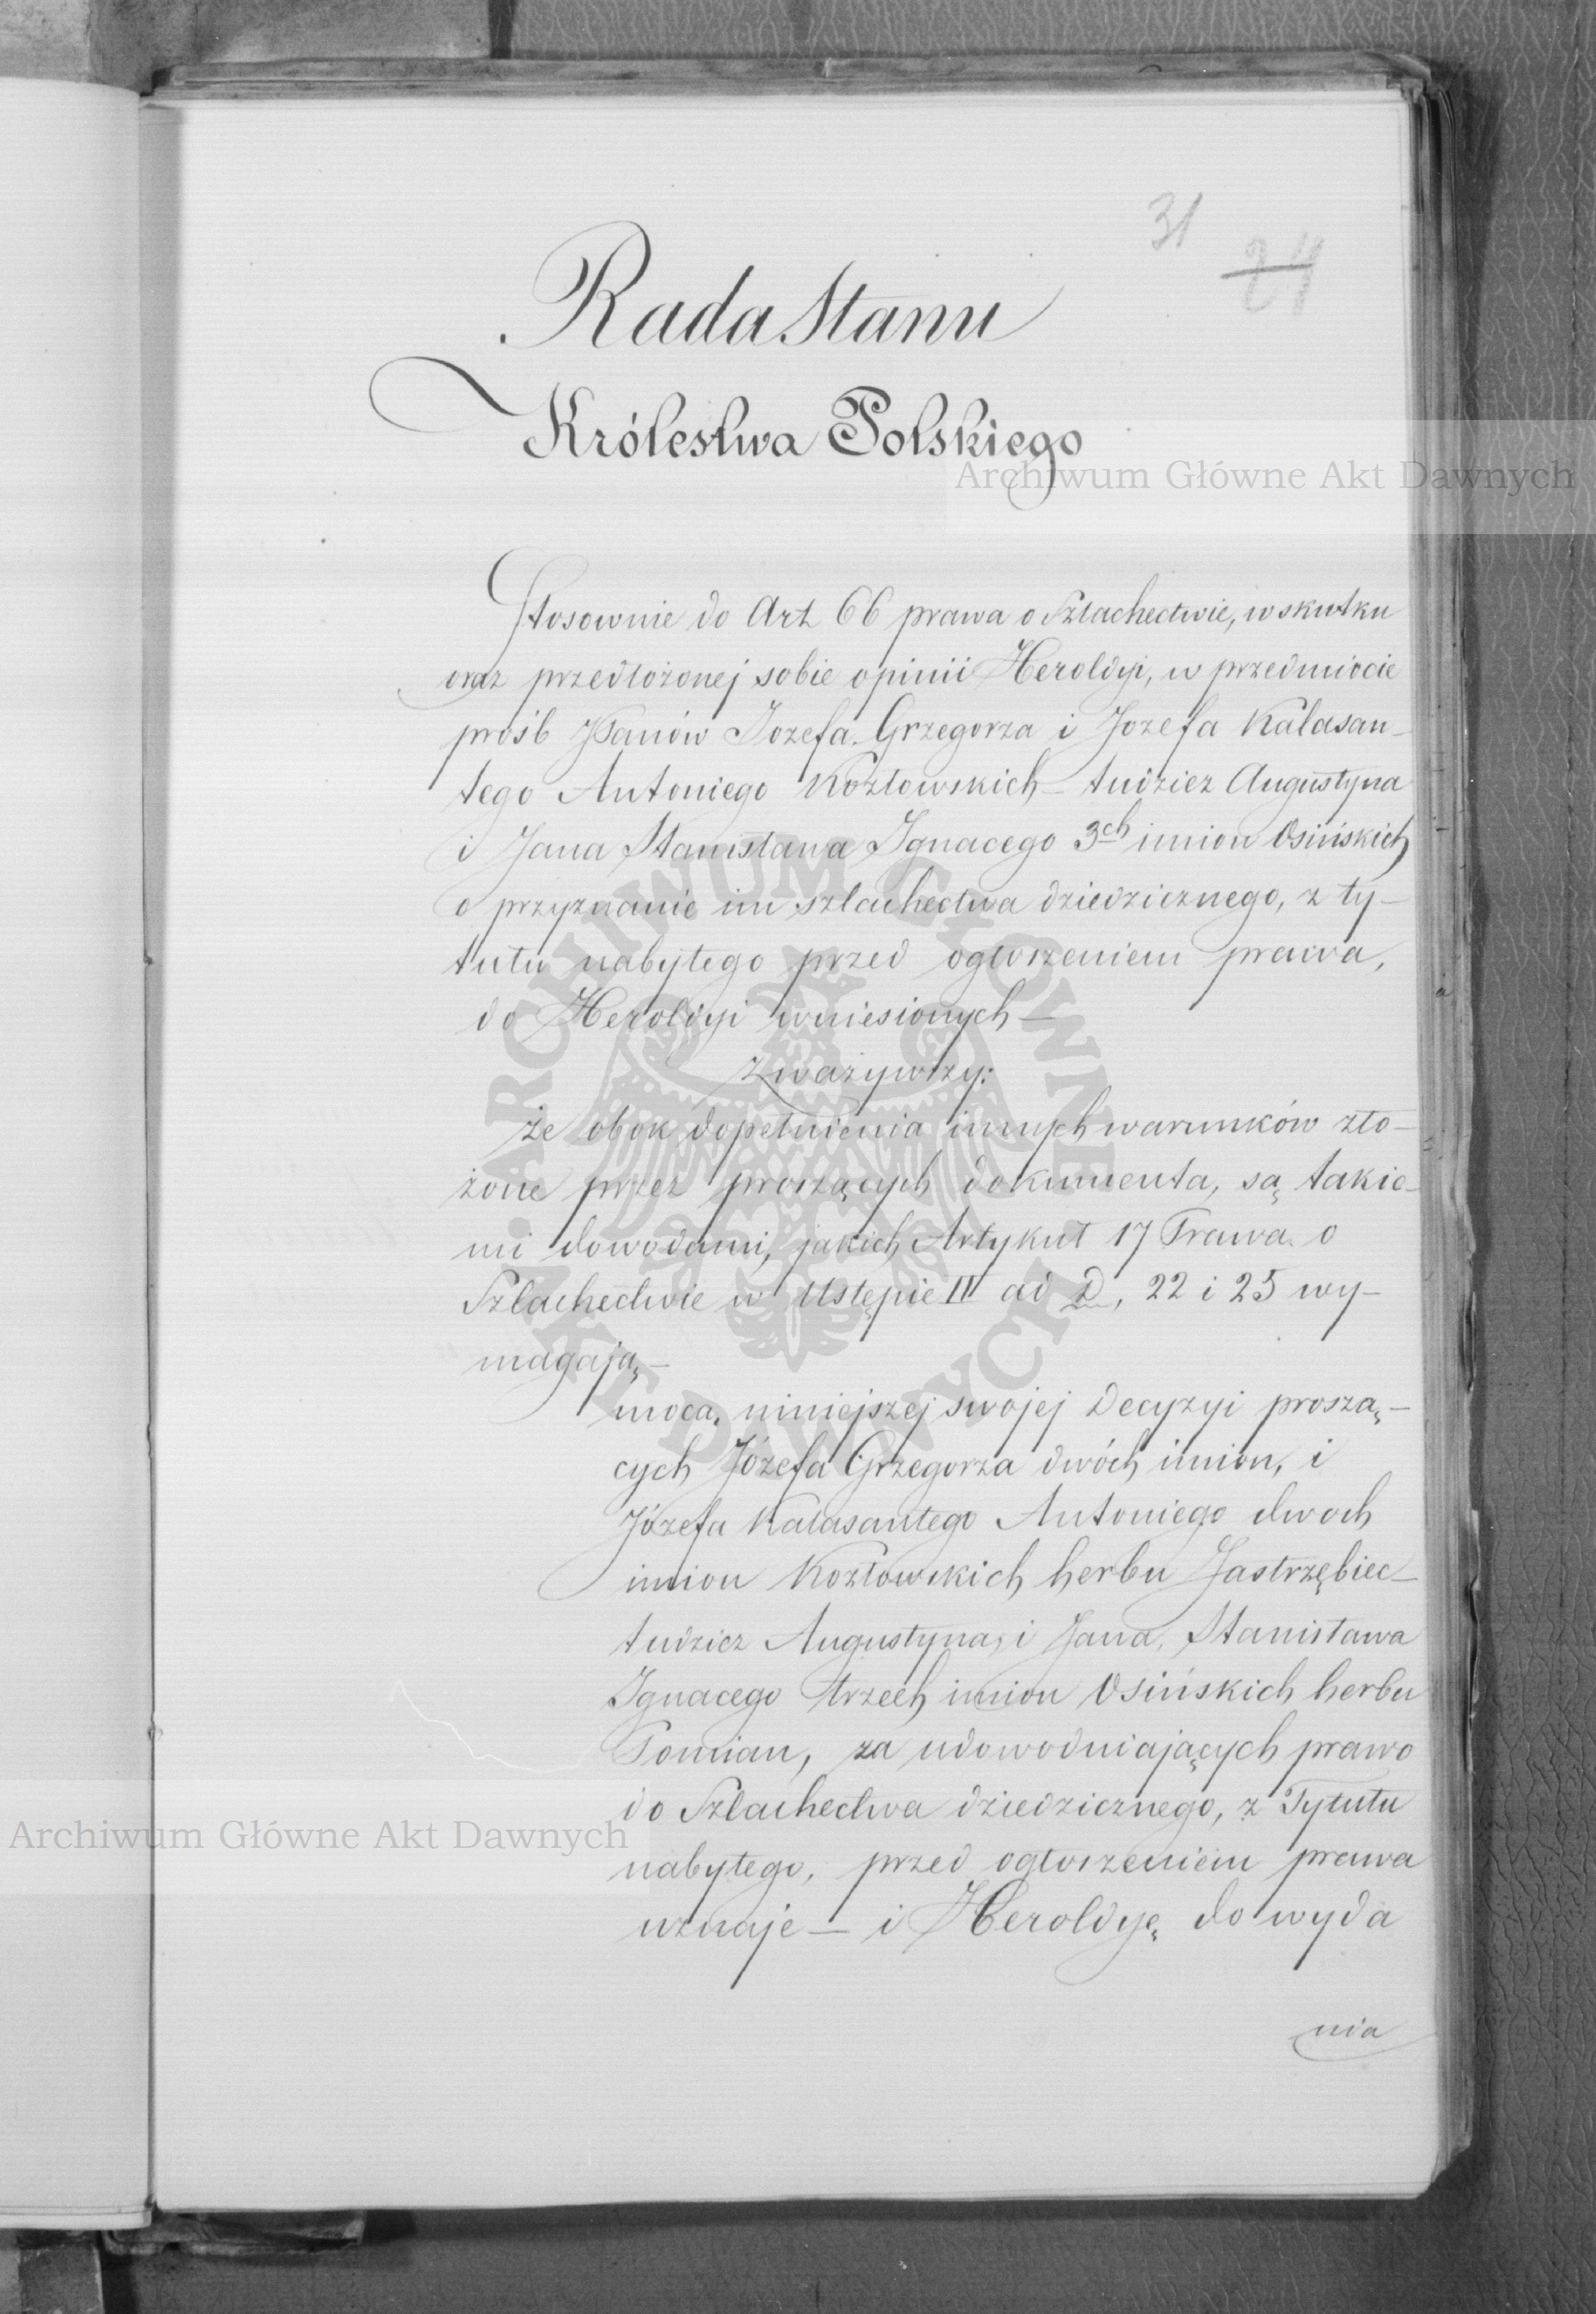 31
24
Rada Stanu
Królestwa Polskiego
Archiwum Główne Akt Dawnych
Stosownie do Art 66 prawa o Szlachectwie, w skutku
oraz przedłożonej sobie opinii Heroldyi, w przedmiocie
prośb JPanów Jozefa Grzegorza i Jozefa Kalasan-
tego Antoniego Kozłowskich – tudzież Augustyna
i Jana Stanisława Ignacego 3ch imion Osińskich
o przyznanie im szlachectwa dziedzicznego, z ty-
tułu nabytego przed ogłoszeniem prawa,
do Heroldyi wniesionych –
Zważywszy:
że obok dopełnienia innych warunków zło-
żone przez proszących dokumenta, są takie-
mi dowodami, jakich Artykuł 17 Prawa o
Szlachectwie w Ustępie II ad D, 22 i 25 wy-
magają –
mocą niniejszej swojej Decyzyi proszą-
cych Józefa Grzegorza dwóch imion, i
Józefa Kalasantego Antoniego dwoch
imion Kozłowskich herbu Jastrzębiec –
tudzież Augustyna, i Jana, Stanisława
Ignacego trzech imion Osińskich herbu
Pomian, za udowodniających prawo
do Szlachectwa dziedzicznego, z Tytułu
Archiwum Główne Akt Dawnych
nabytego, przed ogłoszeniem prawa
uznaje – i Heroldyę do wyda
nia
ARCHIWUM GŁÓWNE AKT DAWNYCH